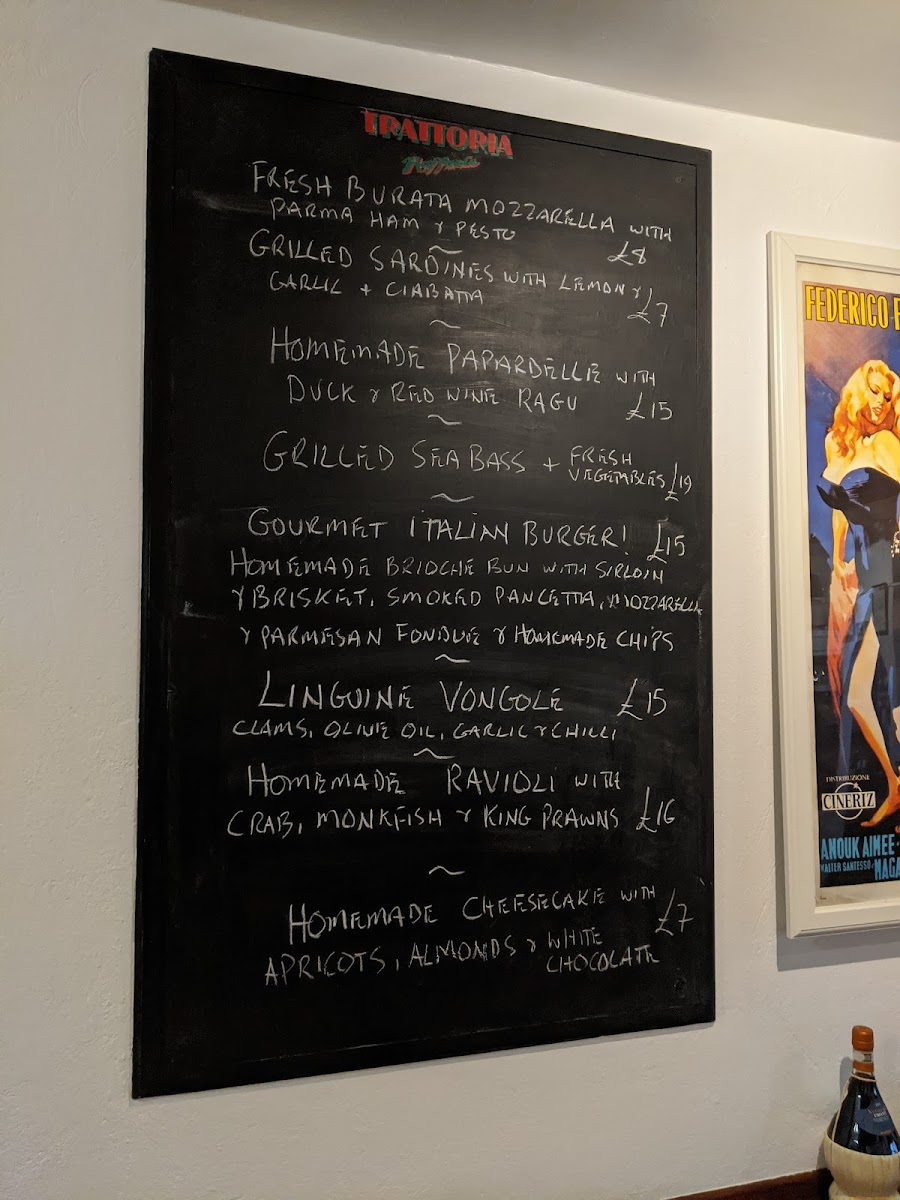 TRATTORIA
FRESH BURATA MOZZARELLA WITH
PARMA HAM & PESTO £8
~
GRILLED SARDINES WITH LEMON &
GARLIC + CIABATTA £7
~
HOMEMADE PAPARDELLE WITH
DUCK & RED WINE RAGU £15
~
GRILLED SEA BASS + FRESH
VEGETABLES £19
~
GOURMET ITALIAN BURGER! £15
HOMEMADE BRIOCHE BUN WITH SIRLOIN
& BRISKET, SMOKED PANCETTA, MOZZARELLA
& PARMESAN FONDUE & HOMEMADE CHIPS
~
LINGUINE VONGOLE £15
CLAMS, OLIVE OIL, GARLIC & CHILLI
~
HOMEMADE RAVIOLI WITH
CRAB, MONKFISH & KING PRAWNS £16
~
HOMEMADE CHEESECAKE WITH £7
APRICOTS, ALMONDS & WHITE
CHOCOLATE
FEDERICO F
DISTRIBUZIONE
CINERIZ
ANOUK AIMEE -
WALTER SANTESSO - MAGA